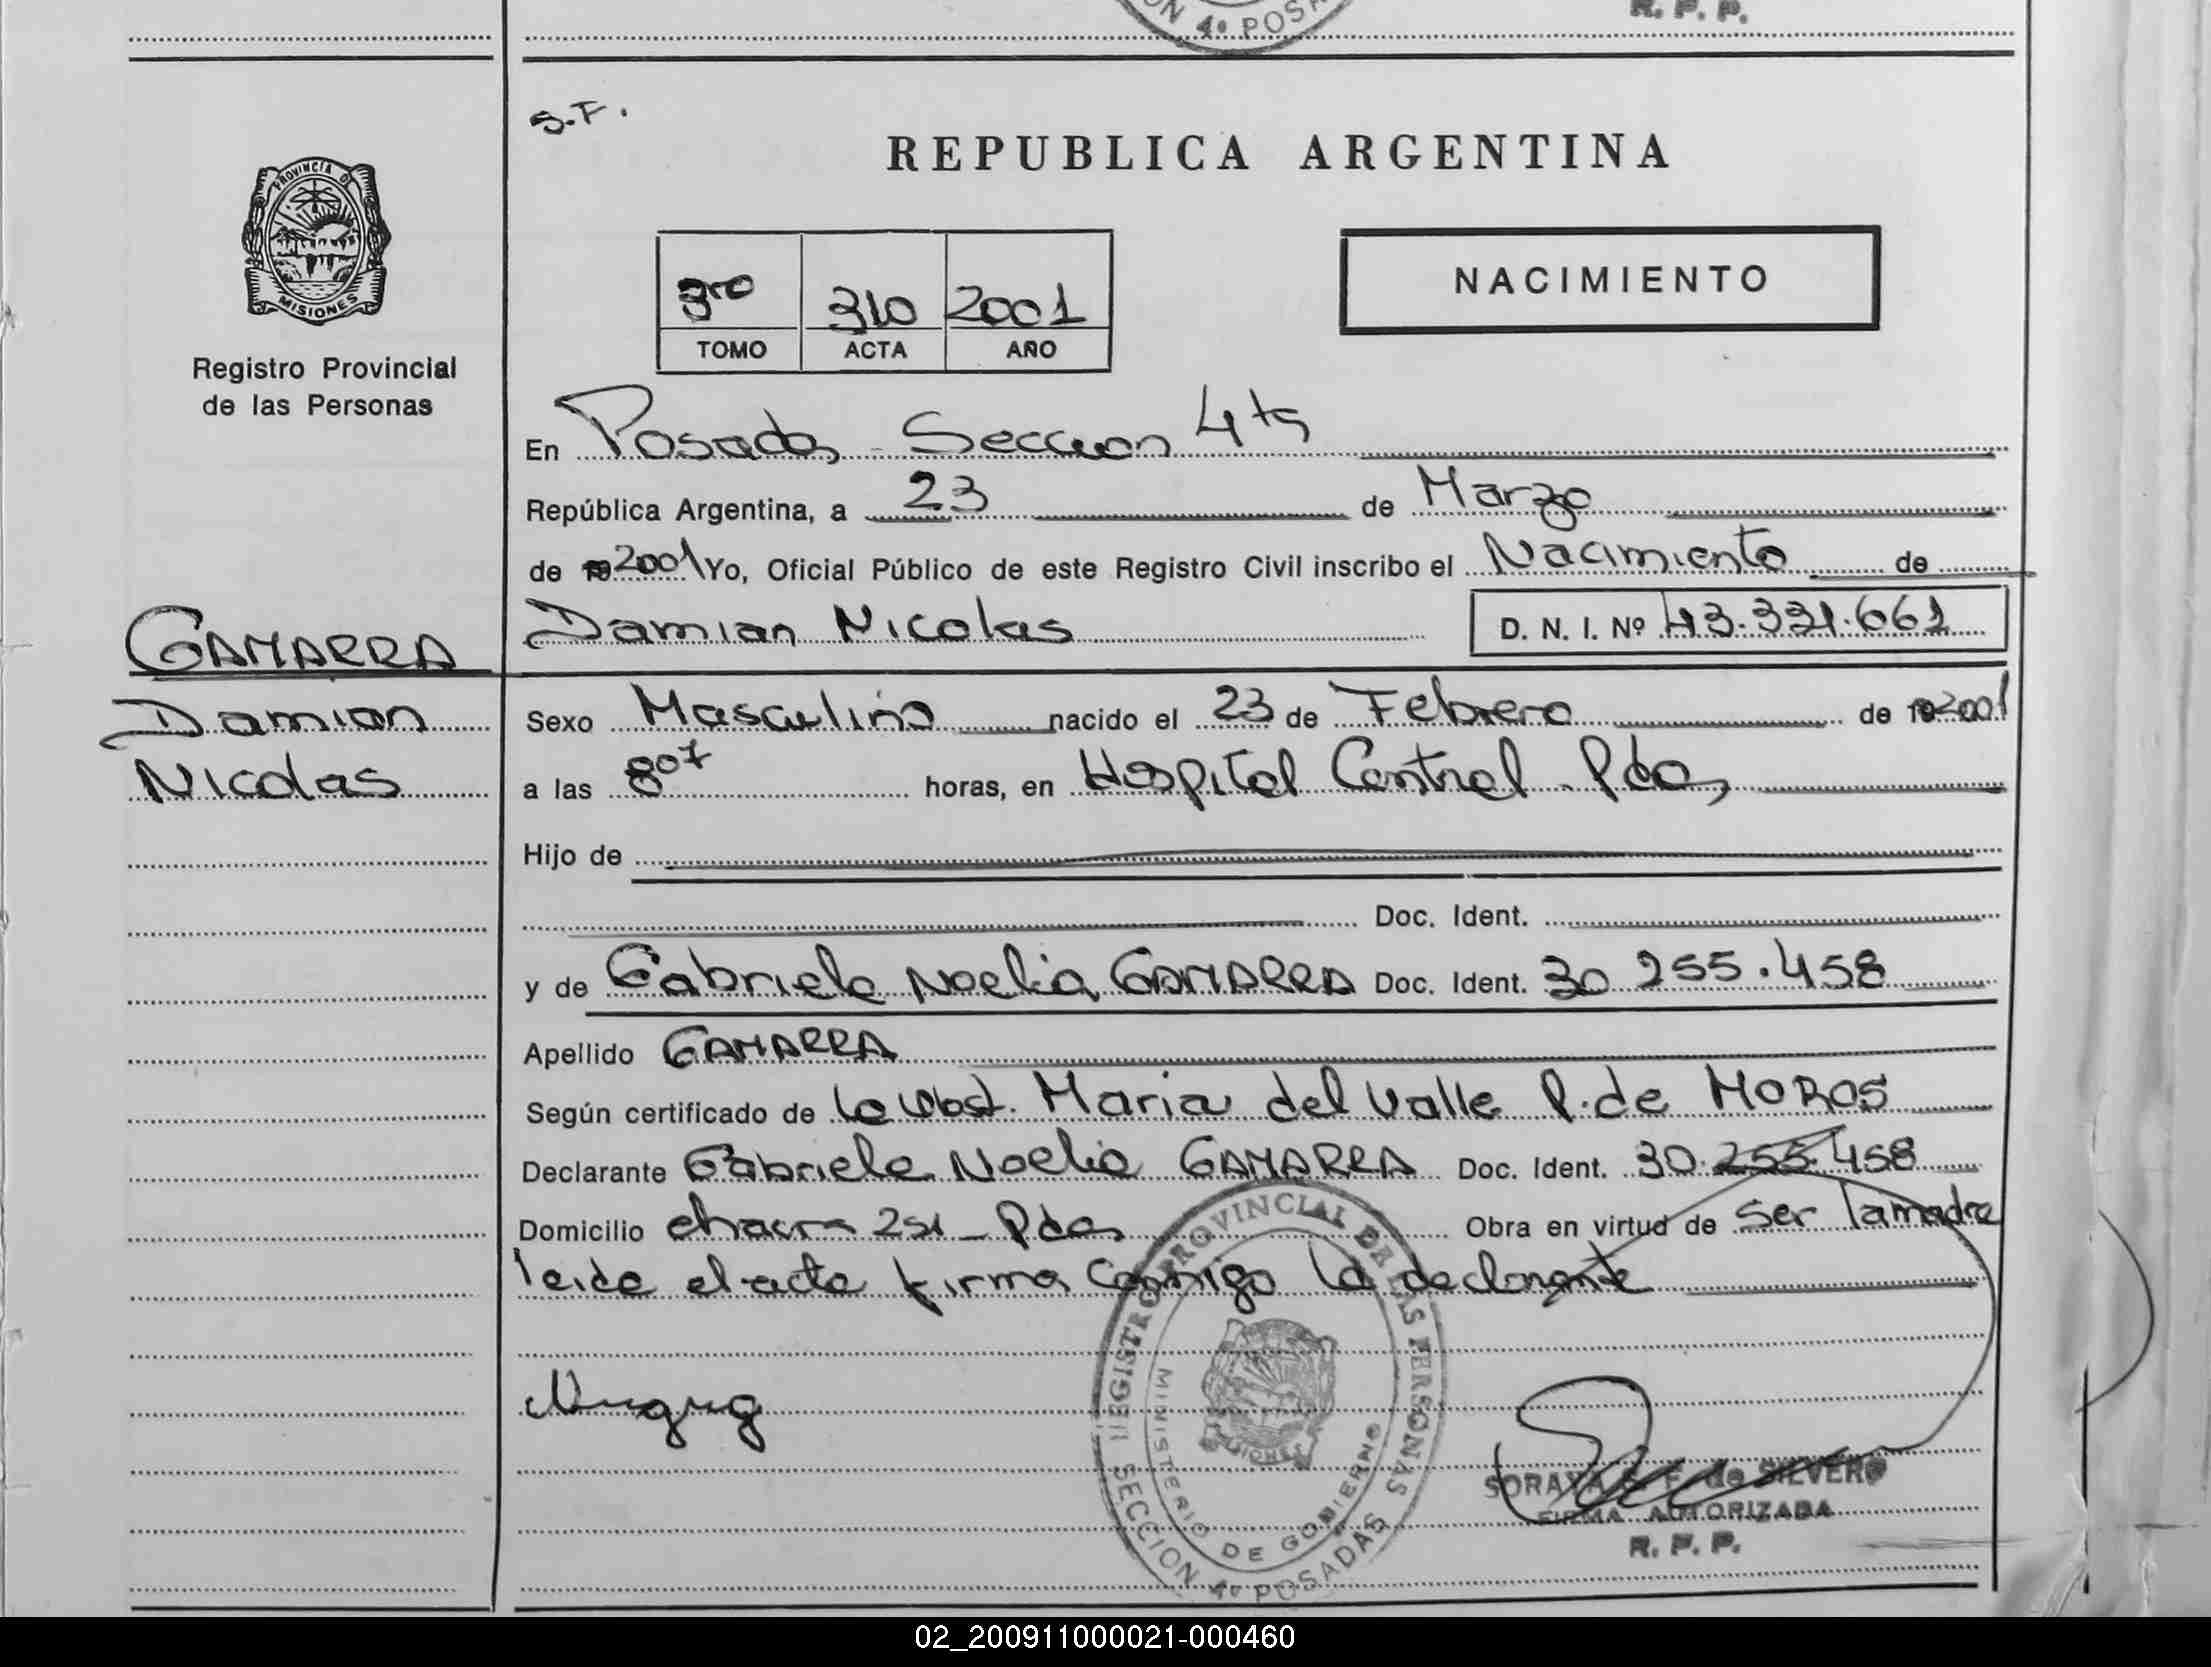 CION 4º POSA
R. P. P.
S.F.
REPUBLICA ARGENTINA
PROVINCIA DE
MISIONES
Registro Provincial
de las Personas
3ro 310 2001
TOMO ACTA AÑO
NACIMIENTO
En Posadas - Seccion 4ta
República Argentina, a 23 de Marzo
de 19 2001 Yo, Oficial Público de este Registro Civil inscribo el Nacimiento de
GAMARRA
Damian
Nicolas
Damian Nicolas D. N. I. Nº 43.331.661
Sexo Masculino nacido el 23 de Febrero de 19 2001
a las 8 07 horas, en Hospital Central - Pdas
Hijo de
Doc. Ident.
y de Gabriela Noelia GAMARRA Doc. Ident. 30 255.458
Apellido GAMARRA
Según certificado de la Obst. Maria del Valle P. de MOROS
Declarante Gabriela Noelia GAMARRA Doc. Ident. 30.255.458
Domicilio chacra 251 - Pdas Obra en virtud de ser la madre
leida el acta firma conmigo la declarante
REGISTRO PROVINCIAL DE LAS PERSONAS
MINISTERIO DE GOBIERNO
MISIONES
SECCION 4º POSADAS
SORAYA F. de SILVERO
FIRMA AUTORIZADA
R. P. P.
02_200911000021-000460